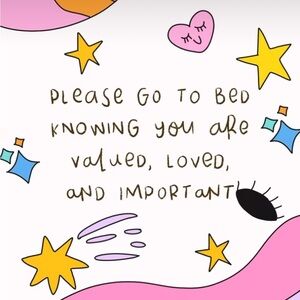 PLEASE GO TO BED
KNOWING YOU ARE
VALUED, LOVED,
AND IMPORTANT